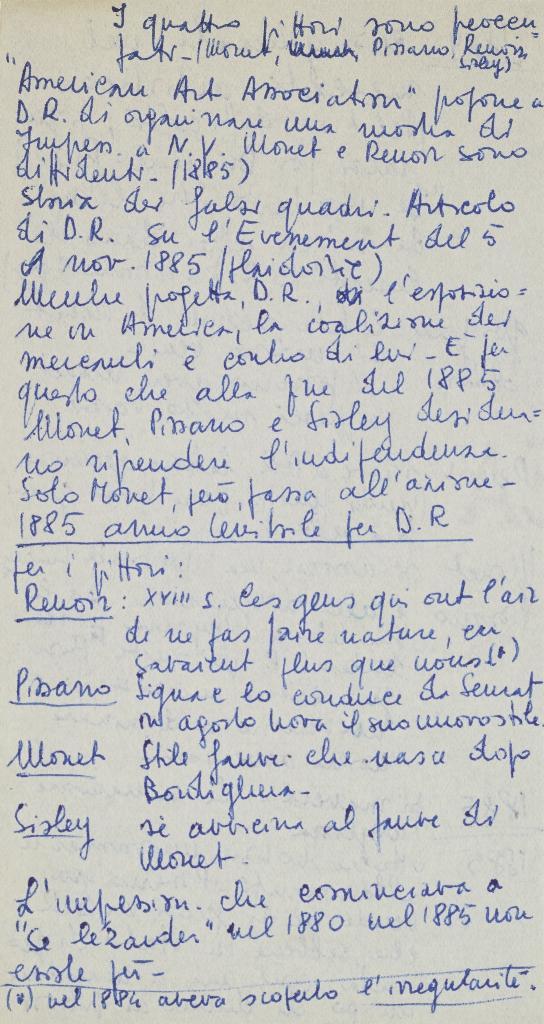 I quattro pittori sono preoccu-
pati - (Monet, Pissarro, Renoir,
Sisley)
"American Art Association" propone a
D.R. di organizzare una mostra di
Impress. a N.Y. Monet e Renoir sono
diffidenti - (1885)
Storia dei falsi quadri. Articolo
di D.R. su l'Evenement del 5
nov. 1885
Mentre progetta, D.R., l'esposizio=
ne in America, la coalizione dei
mercanti è contro di lui - E' per
questo che alla fine del 1885
Monet, Pissarro e Sisley desidera=
no riprendere l'indipendenza.
Solo Monet, però, passa all'azione -
1885 anno terribile per D.R
per i pittori:
Renoir: XVIII s. Ces gens qui ont l'air
de ne pas faire nature, en
savaient plus que nous (*)
Pissarro Signac lo conduce da Seurat
in agosto trova il suo nuovo stile.
Monet Stile fauve che nasce dopo
Bordighera -
Sisley si avvicina al fauve di
Monet.
L'impression. che cominciava a
"se lézarder" nel 1880 nel 1885 non
esiste più -
(*) nel 1884 aveva scoperto l'irregularité.